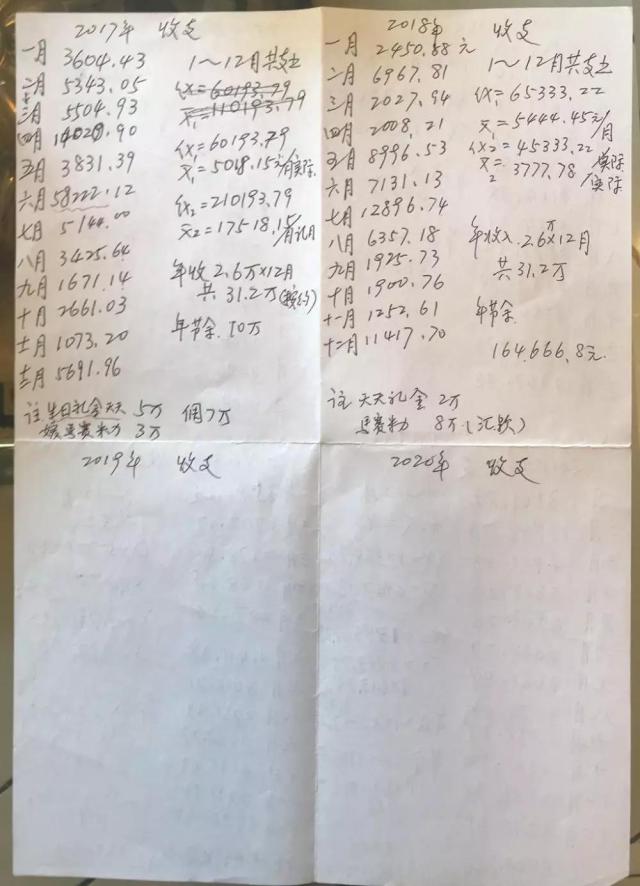 2017年 收支
一月 3604.43 1～12月共支出
二月 5343.05
三月 5504.93
四月 14029.90 仅=60193.79
五月 3831.39 x̄₁=5018.15元/月实际
六月 58222.12
七月 5144.00 仅₂=210193.79
八月 3425.64 x̄₂=17518.15/月
九月 1671.14 年收 2.6万×12月
十月 2661.03 共 31.2万
十一月 1073.20 年节余 10万
十二月 5691.96
注 生日礼金天天 5万
马赛 3万
2018年 收支
一月 2450.88 元 1～12月共支出
二月 6967.81
三月 2027.94 65333.22
四月 2008.21 x̄₁=5444.45元/月
五月 8996.53 45333.22
六月 7131.13 x̄₂=3777.78 /实际
七月 12896.74
八月 6357.18 年收入 2.6万×12月
九月 1925.73 共31.2万
十月 1900.76
十一月 1252.61 年节余
十二月 11417.70 164,666.8元
注 天天礼金 2万
马赛 8万(汇款)
2019年 收支
2020年 收支